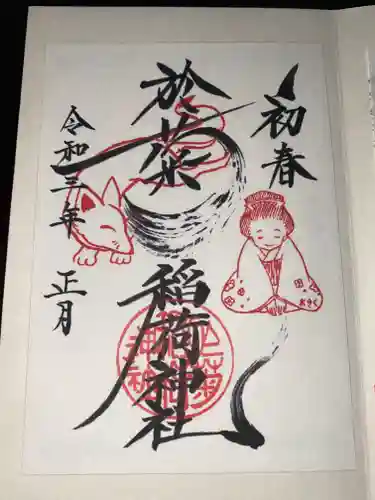 初春
於菊稲荷神社
令和三年 正月
おきく